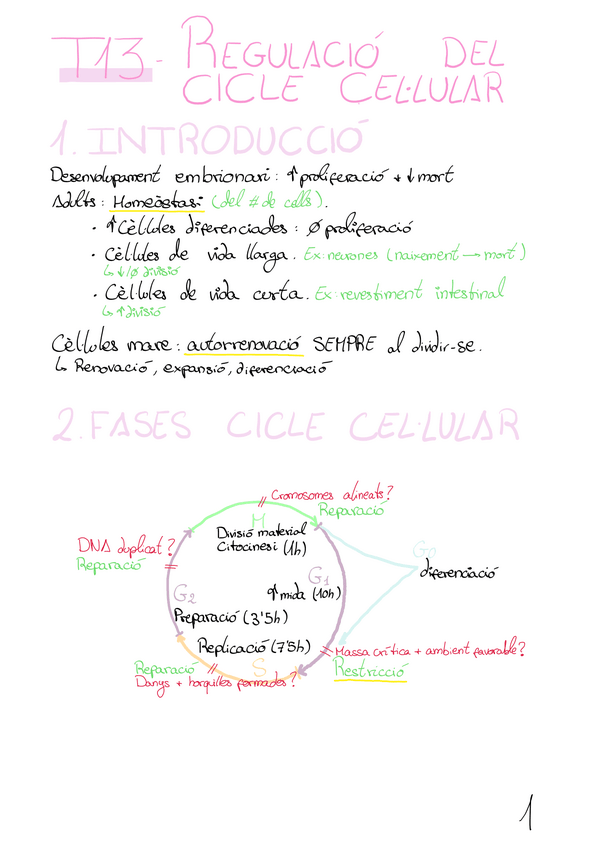 T13- REGULACIÓ DEL
CICLE CEL·LULAR
1. INTRODUCCIÓ
Desenvolupament embrionari: ↑ proliferació + ↓ mort
Adults: Homeòstasi (del # de cells).
· ↑ Cèl·lules diferenciades: Ø proliferació
· Cèl·lules de vida llarga. Ex: neurones (naixement → mort)
↳ ↓/Ø divisió
· Cèl·lules de vida curta. Ex: revestiment intestinal
↳ ↑ divisió
Cèl·lules mare: autorrenovació SEMPRE al dividir-se.
↳ Renovació, expansió, diferenciació
2. FASES CICLE CEL·LULAR
Cromosomes alineats?
Reparació
M
Divisió material
Citocinesi (1h)
DNA duplicat?
Reparació
G0
diferenciació
G1
↑ mida (10h)
G2
Preparació (3'5h)
Replicació (7'5h)
Massa crítica + ambient favorable?
Restricció
Reparació
S
Danys + horquilles formades?
1